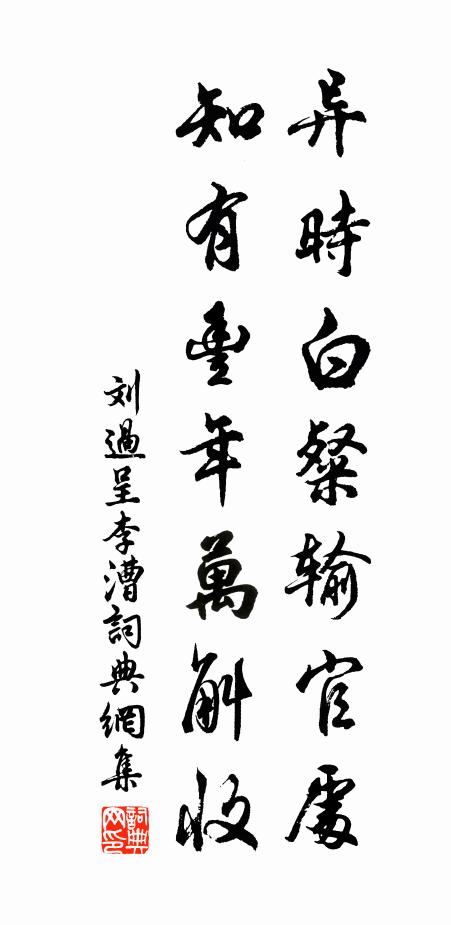 异時白粲輸官處
知有豐年萬斛收
刘過呈李漕詞典網集
詞典网印